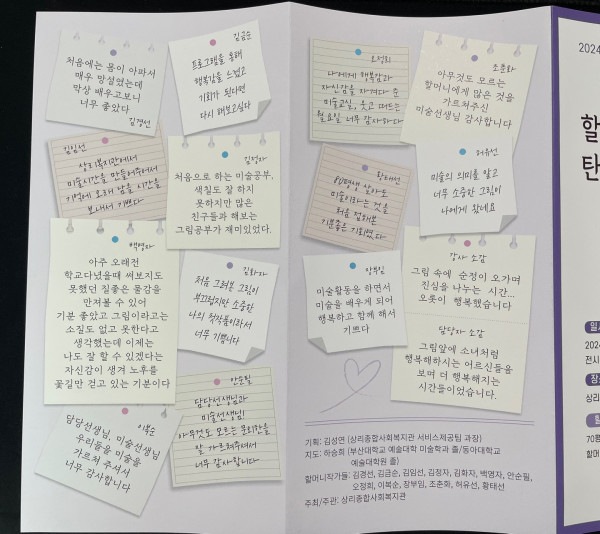 처음에는 몸이 아파서
매우 망설였는데
막상 배우고보니
너무 좋았다
김경선
김금순
프로그램을 통해
행복감을 느꼈고
기회가 된다면
다시 해보고싶다
김임선
상리복지관에서
미술시간을 만들어주어서
기억에 오래 남을 시간을
보내서 기쁘다
김정자
처음으로 하는 미술공부,
색칠도 잘 하지
못하지만 많은
친구들과 해보는
그림공부가 재미있었다.
백영자
아주 오래전
학교다녔을때 써보지도
못했던 질좋은 물감을
만져볼 수 있어
기분 좋았고 그림이라고는
소질도 없고 못한다고
생각했는데 이제는
나도 잘 할 수 있겠다는
자신감이 생겨 노후를
꽃길만 걷고 있는 기분이다
김화자
처음 그려본 그림이
부끄럽지만 소중한
나의 첫작품이라서
너무 기쁩니다
안순필
담당선생님과
미술선생님!
아무것도 모르는 문외한을
잘 가르쳐주셔서
너무 감사합니다
이복순
담당선생님, 미술선생님
우리들을 미술을
가르쳐 주셔서
너무 감사합니다
오정희
나에게 행복감과
자신감을 자겨다 준
미술교실, 웃고 떠드는
월요일 너무 감사하다
조춘화
아무것도 모르는
할머니에게 많은 것을
가르쳐주신
미술선생님 감사합니다
황태선
평생 살아도
미술이라는 것을
처음 접해본
기분좋은 기회였다
허유선
미술의 의미를 알고
너무 소중한 그림이
나에게 왔네요
장부임
미술활동을 하면서
미술을 배우게 되어
행복하고 함께 해서
기쁘다
강사 소감
그림 속에 순정이 오가며
진심을 나누는 시간...
오롯이 행복했습니다
담당자 소감
그림앞에 소녀처럼
행복해하시는 어르신들을
보며 더 행복해지는
시간들이었습니다.
기획: 김성연 (상리종합사회복지관 서비스제공팀 과장)
지도: 하승희 (부산대학교 예술대학 미술학과 졸/동아대학교
예술대학원 졸)
할머니작가들: 김경선, 김금순, 김임선, 김정자, 김화자, 백영자, 안순필,
오정희, 이복순, 장부임, 조춘화, 허유선, 황태선
주최/주관: 상리종합사회복지관
2024
할
탄
2024
전시
상리
70평
할머